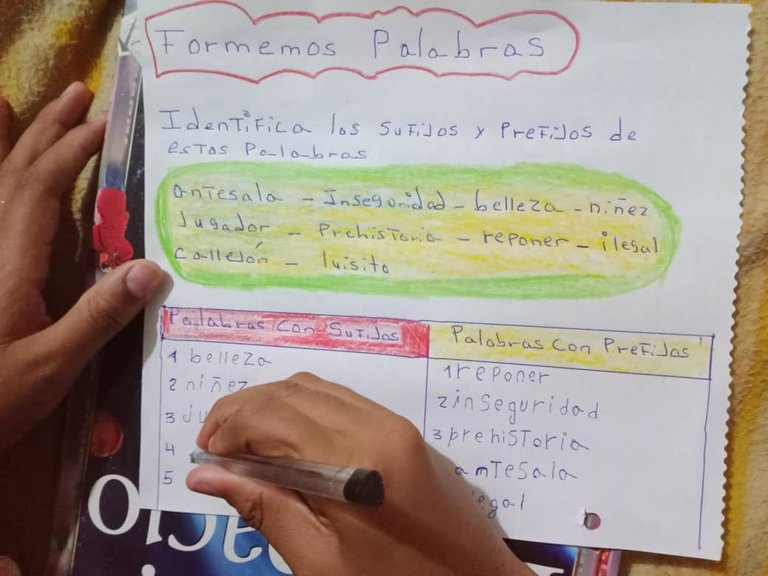 Formemos Palabras
Identifica los sufijos y prefijos de
estas Palabras
antesala - Inseguridad - belleza - niñez
Jugador - Prehistoria - reponer - ilegal
callejón - luisito
Palabras con Sufijos
Palabras con Prefijos
1 belleza
2 niñez
3 ju
4
5
1 reponer
2 inseguridad
3 prehistoria
antesala
legal